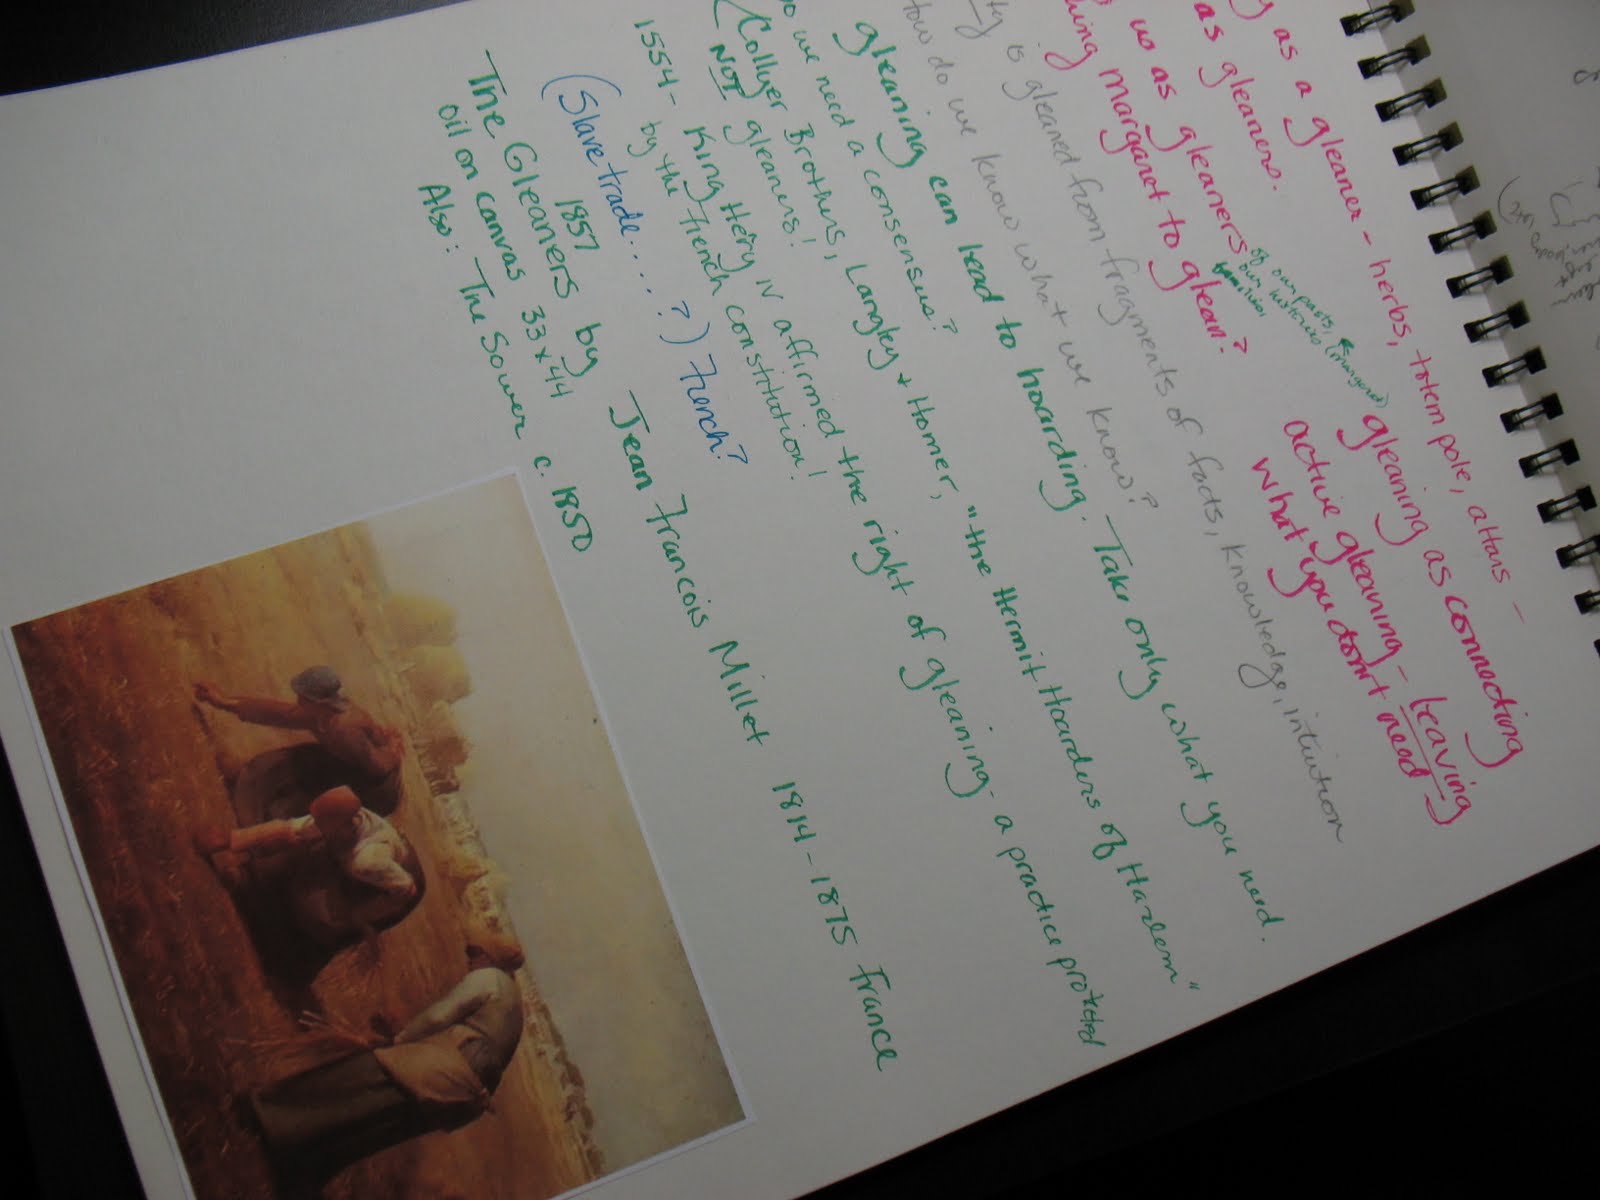 as a gleaner - herbs, totem pole, altars -
as gleaners. gleaning as connecting
us as gleaners of our pasts, (margaret) active gleaning - leaving
of our histories
families,
margaret to glean? what you don't need -
is gleaned from fragments of facts, knowledge, intuition
How do we know what we know?
gleaning can lead to hoarding. Take only what you need.
do we need a consensus?
(Collyer Brothers, Langley + Homer, "the Hermit Hoarders of Harlem"
NOT gleaners!
1554 - King Henry IV affirmed the right of gleaning - a practice protected
by the French constitution!
(Slave trade....?) French?
The Gleaners by Jean Francois Millet 1814-1875 France
1857
oil on canvas 33 x 44
Also: The Sower c. 1850